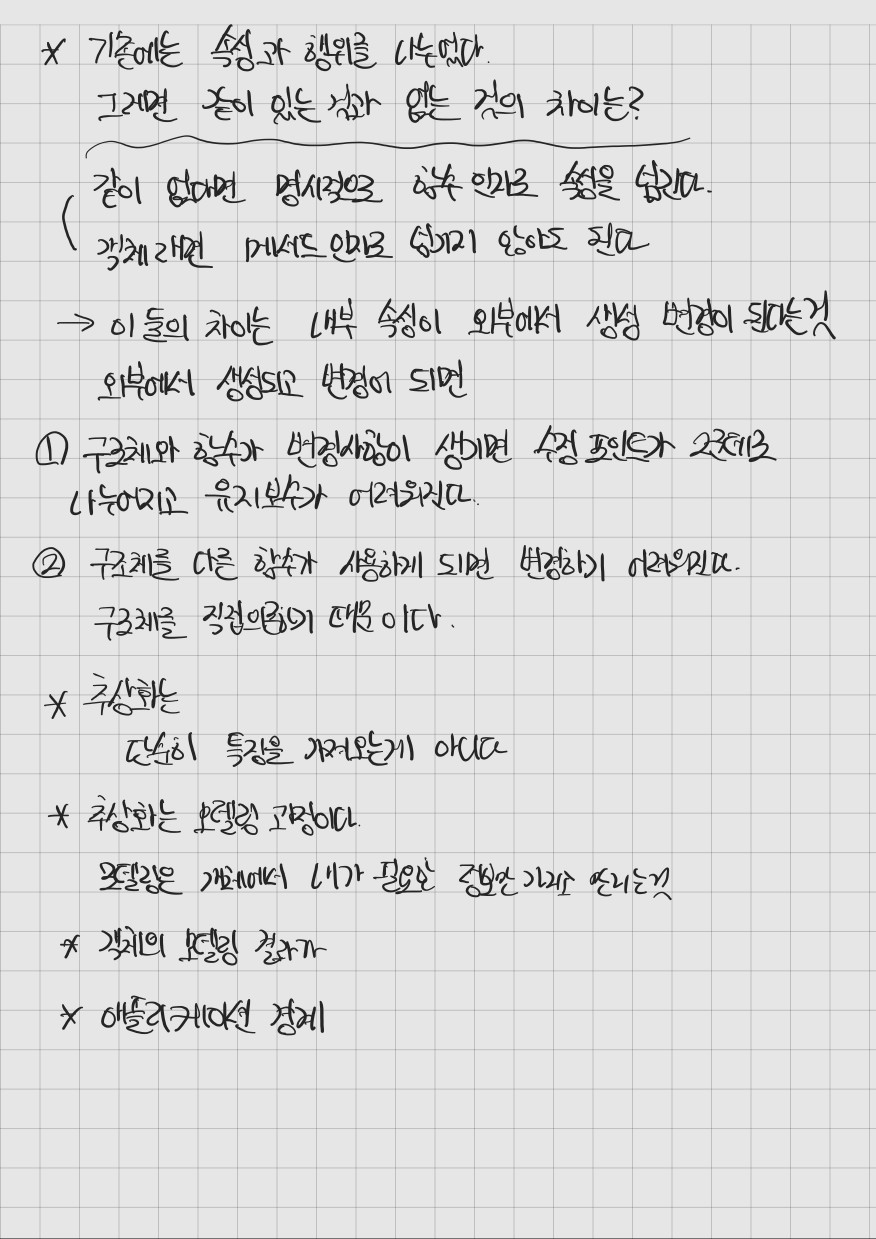 * 기존에는 속성과 행위를 나누었다.
그러면 같이 있는 것과 없는 것의 차이는?
같이 없다면 명시적으로 함수 인자로 속성을 넘긴다.
객체라면 메서드 인자로 넘기지 않아도 된다
→ 이들의 차이는 내부 속성이 외부에서 생성 변경이 된다는것
외부에서 생성되고 변경이 되면
① 구조체와 함수가 변경사항이 생기면 수정 포인트가 2군데로
나누어지고 유지보수가 어려워진다.
② 구조체를 다른 함수가 사용하게 되면 변경하기 어려워진다.
구조체를 직접의존하기 때문이다.
* 추상화는
단순히 특징을 가져오는게 아니다
* 추상화는 모델링 과정이다.
모델링은 개체에서 내가 필요한 정보만 가지고 만드는것
* 객체의 모델링 결과가
* 애플리케이션 경계